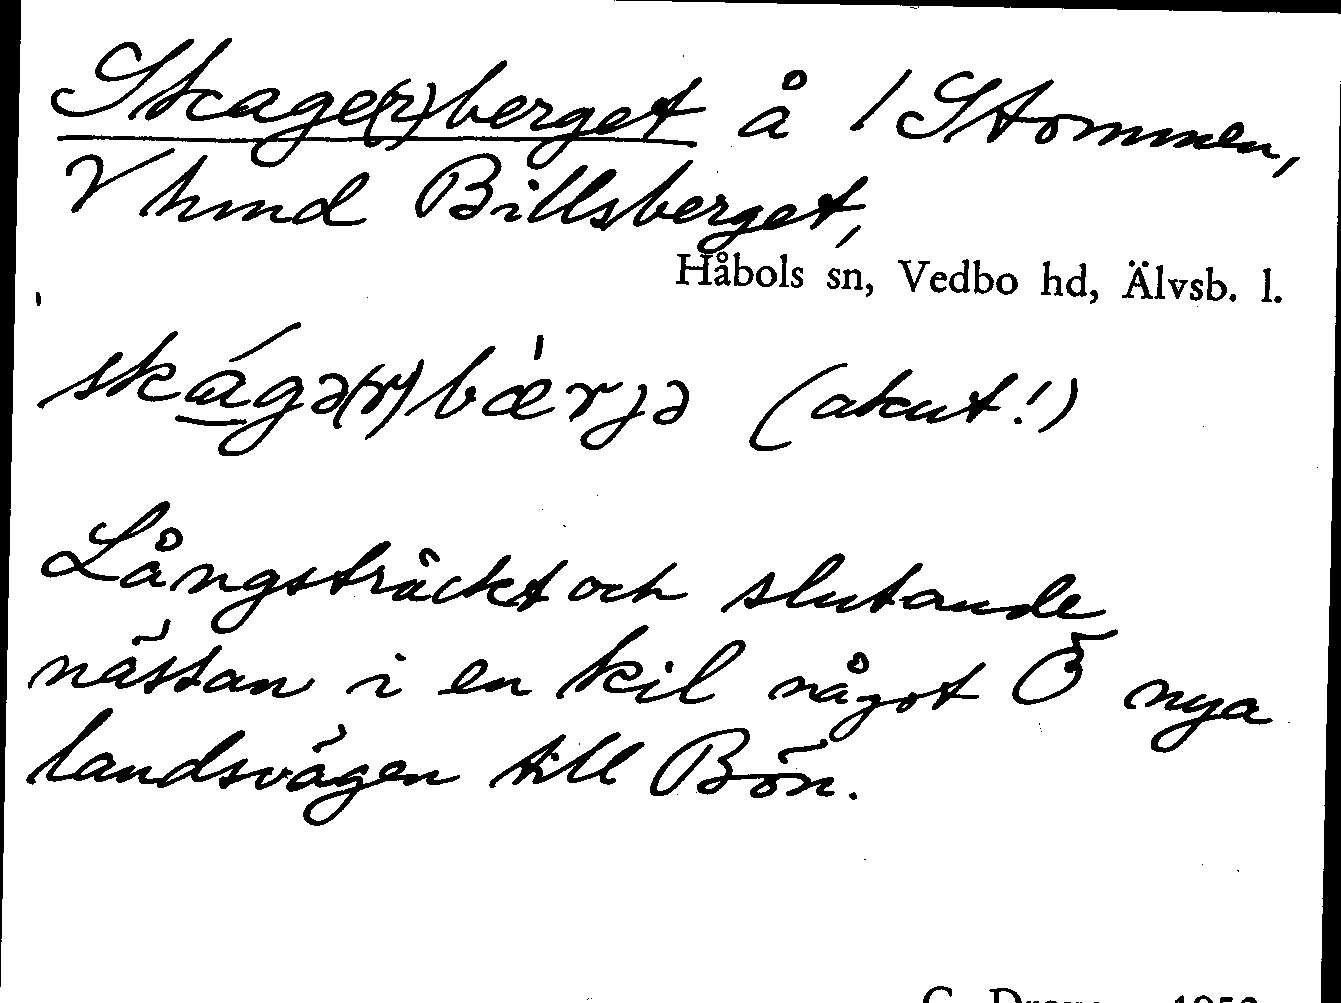 Skage(r)berget å 1 Stommen,
V hmd Billsberget,
Håbols sn, Vedbo hd, Älvsb. l.
skágə(r)bæ̀rjə (akut!)
Långsträckt och slutande
nästan i en kil något Ö nya
landsvägen till Bön.